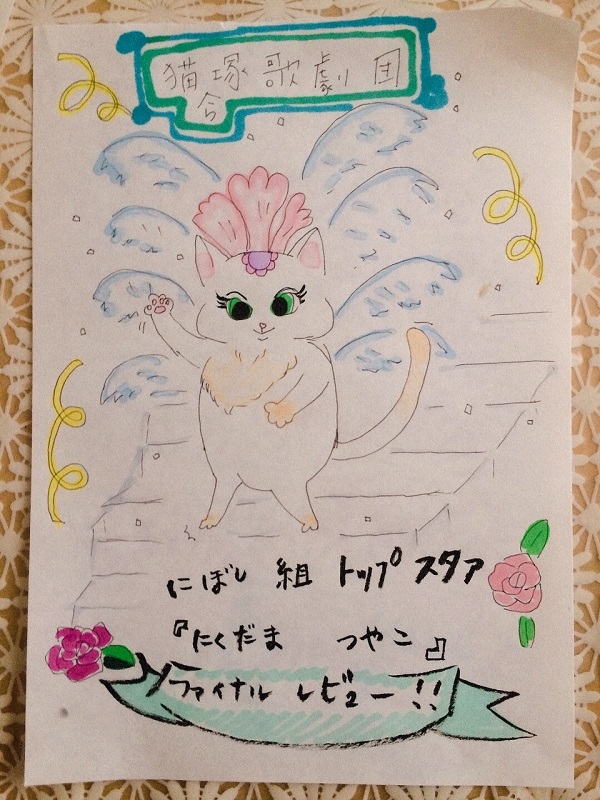 猫塚歌劇団
にぼし 組 トップ スタァ
『にくだま つやこ』
ファイナル レビュー!!